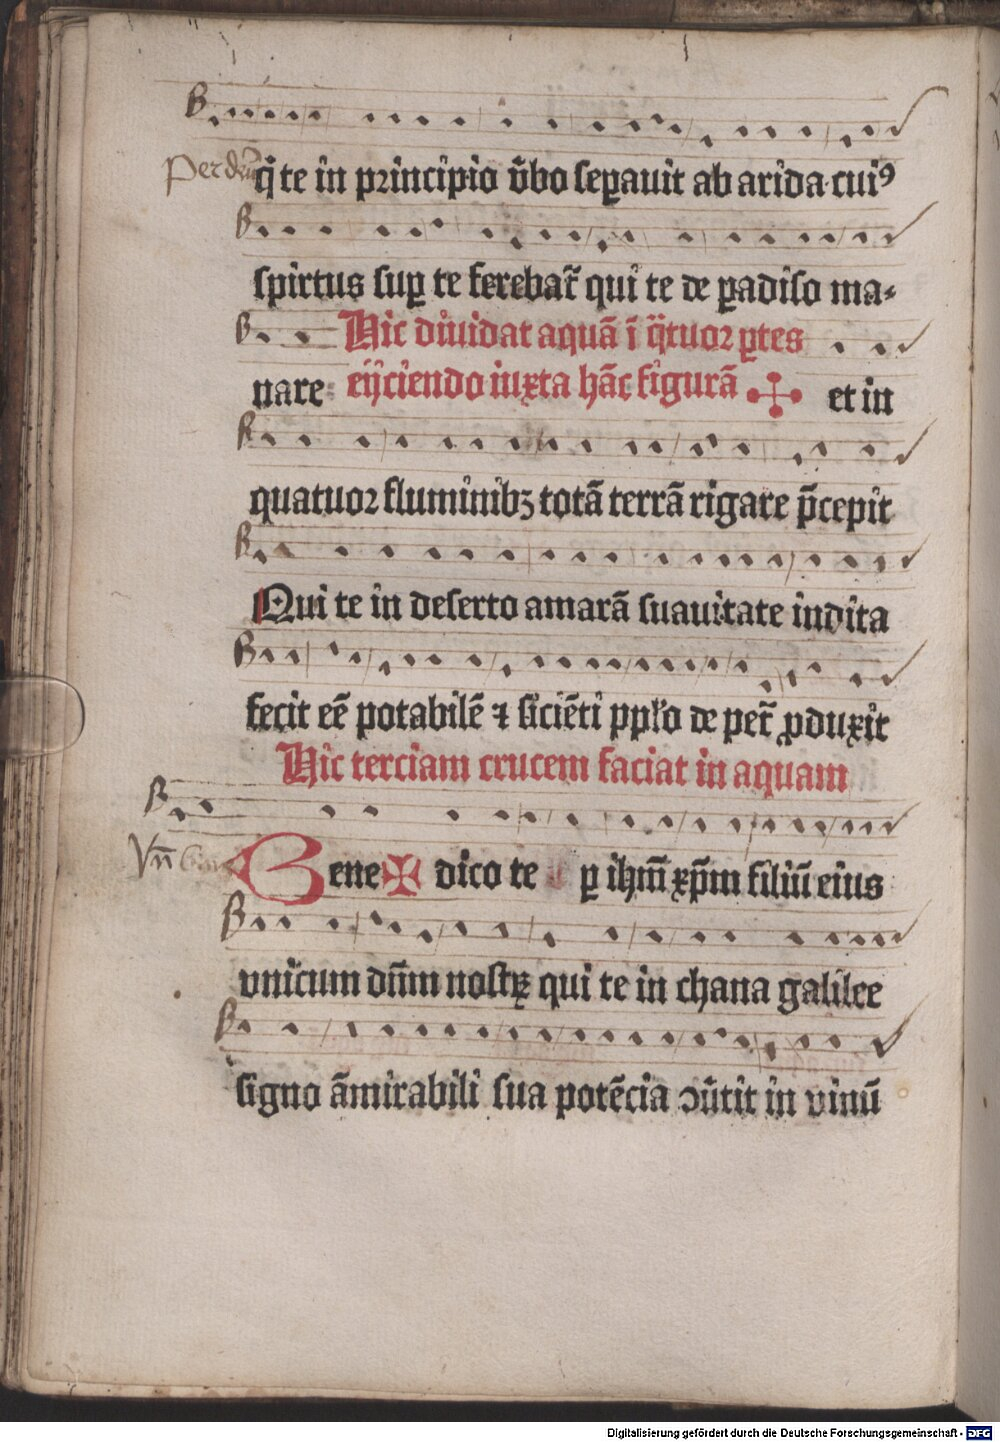 Per deũ
q̃ te in principio v̄bo seꝑauit ab arida cuiꝰ
spirtus suꝑ te ferebat᷑ qui te de ꝑadiso ma⸗
Hic diuidat aquã ĩ q̈tuor ꝑtes
nare eijciendo iuxta hãc figurã et in
quatuor fluminibꝫ totã terrã rigare p̄cepit
Qui te in deserto amarã suauitate indita
fecit eē potabilē ⁊ siciēti pp̄lo de pet̃ ꝓduxit
Hic terciam crucem faciat in aquam
Vn̄
Bene✠dico te ꝑ ihm̄ xp̄m filiū eius
vnicum dn̄m nostꝝ qui te in chana galilee
signo ãmirabili sua potēcia ↄu̅tit in vinū
Digitalisierung gefördert durch die Deutsche Forschungsgemeinschaft - DFG